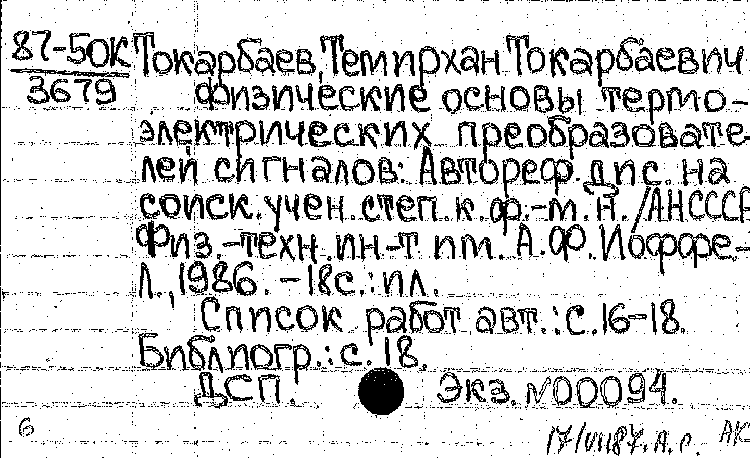 87-50К Токарбаев, Темирхан Токарбаевич
3679 Физические основы термо-
электрических преобразовате-
лей сигналов: Автореф. дис. на
соиск. учен. степ. к. ф.-м. н. /АН СССР
Физ.-техн. ин-т им. А. Ф. Иоффе.-
Л., 1986. - 18 с.: ил.
Список работ авт.: с. 16-18.
Библиогр.: с. 18.
ДСП. Экз. №00094.
6 17/VII87. А. с. АК